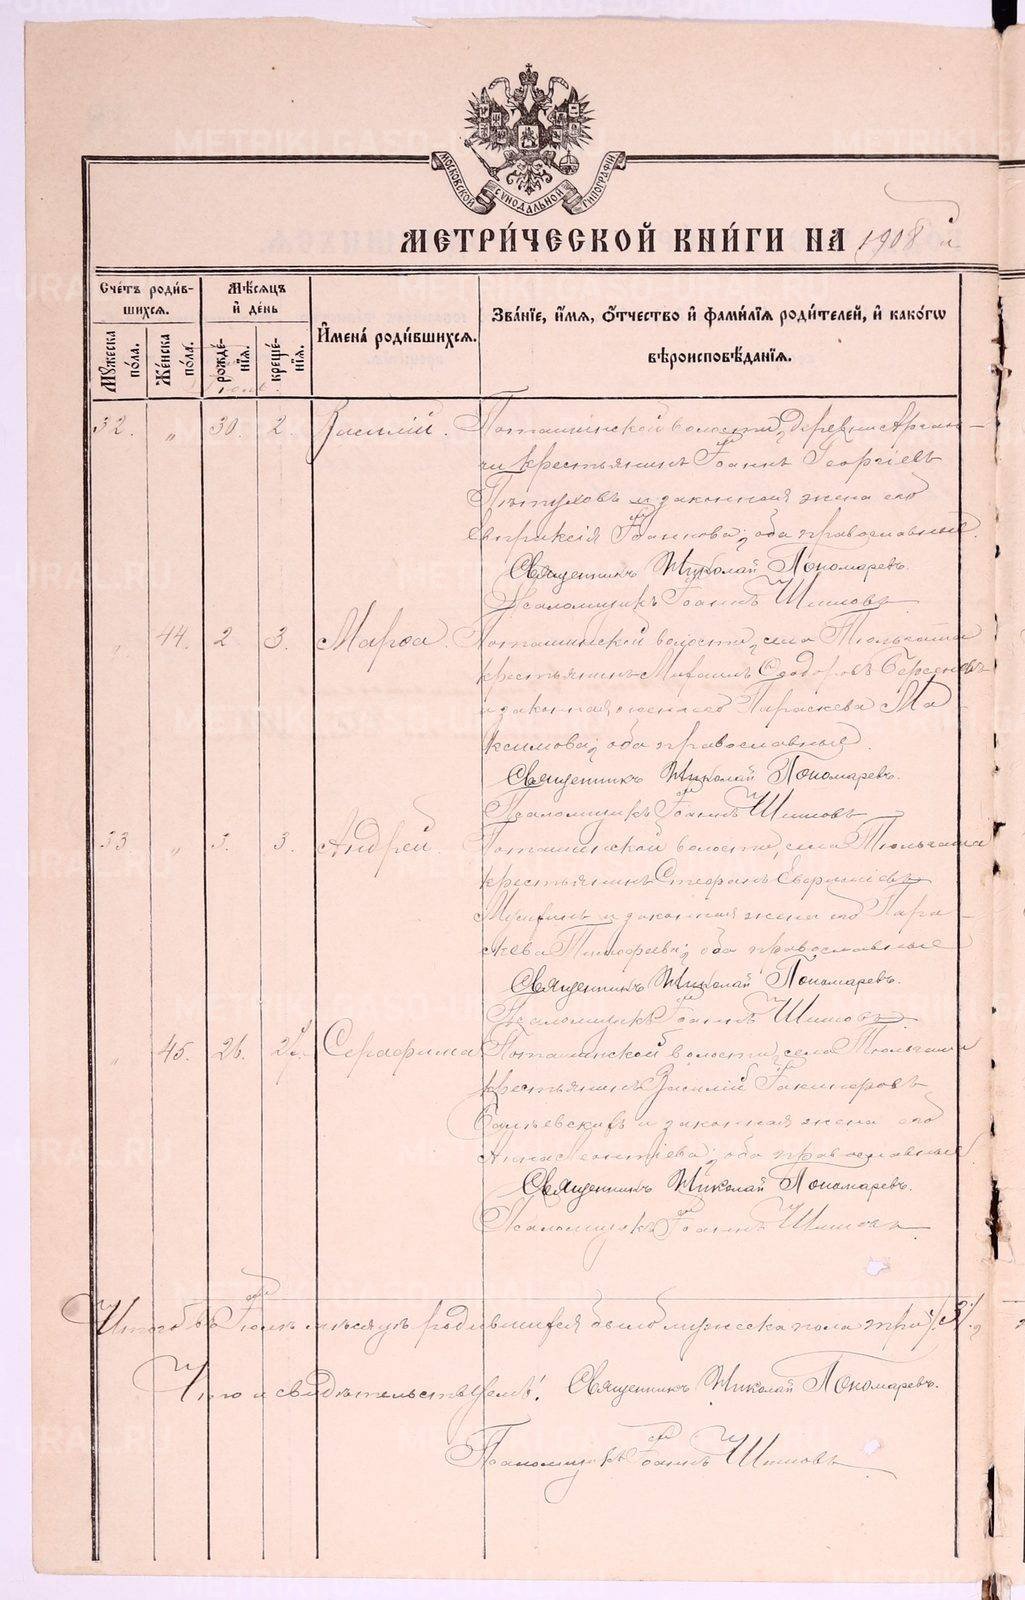 МОСКОВСКОЙ СѴНОДАЛЬНОЙ ТИПОГРАФІИ
МЕТРИ́ЧЕСКОЙ КНИ́ГИ НА 1908 й
Сче́тъ роди́в-
шихся.
Мѣ́сяцъ
и҆ де́нь
Мꙋ́жеска по́ла.
Же́нска по́ла.
рожде́-нїѧ.
креще́-нїѧ.
И҆мена̀ роди́вшихсѧ.
Зва́нїе, и҆́мѧ, ѻ҆́тчество и҆ фами́лїѧ роди́телей, и҆ како́гѡ
вѣроисповѣ́данїѧ.
32. „ 30. 2. Василій. Поташинской волости, деревни
чи крестьянинъ Іоаннъ Георгіевъ
и законная жена его
Евпраксія Іоаннова, оба православные.
Священникъ Николай Пономаревъ.
Псаломщикъ Іоаннъ Шишовъ
„ 44. 2. 3. Марѳа. Поташинской волости, села
крестьянинъ Михаилъ
и законная жена его Параскева Ма
ксимова, оба православные.
Священникъ Николай Пономаревъ.
Псаломщикъ Іоаннъ Шишовъ
33 „ 3. 3. Андрей. Поташинской волости, села
крестьянинъ Стефанъ
и законная жена его Пара-
скева Тимофеева, оба православные
Священникъ Николай Пономаревъ.
Псаломщикъ Іоаннъ Шишовъ
„ 45. 26. 27. Серафима Поташинской волости, села
крестьянинъ Василій
и законная жена его
Анна Леонтіева, оба православные
Священникъ Николай Пономаревъ.
Псаломщикъ Іоаннъ Шишовъ
Итого въ мѣсяцѣ родившихся было мужеска пола три /3/,
Что и свидѣтельствуемъ: Священникъ Николай Пономаревъ.
Псаломщикъ Іоаннъ Шишовъ